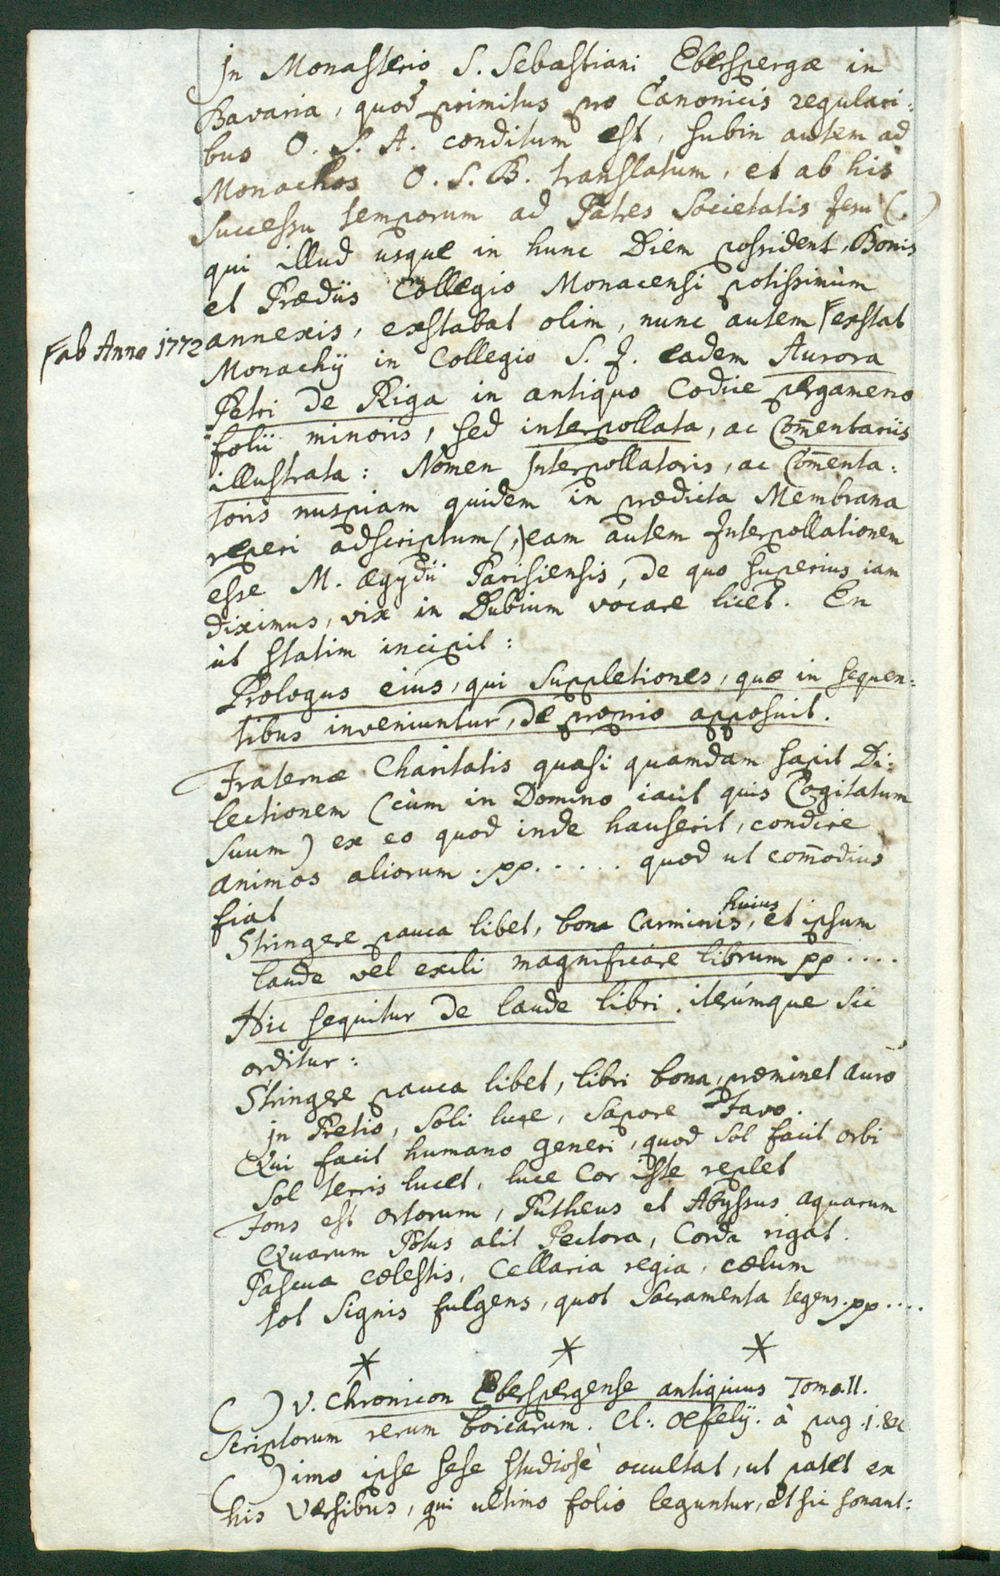 In Monasterio S. Sebastiani Eberspergæ in
Bavaria, quod primitus pro Canonicis regulari:
bus O. S. A. conditum est, subin autem ad
Monachos O. S. B. translatum, et ab his
Successu temporum ad Patres Societatis Jesu (.)
qui illud usque in hunc Diem possident, Bonis
et Prædiis Collegio Monacensi potissimùm
annexis, exstabat olim, nunc autem Γ exstat
Γ ab Anno 1772
Monachij in Collegio S. J. eadem Aurora
Petri de Riga in antiquo Codice pergameno
folii minoris, sed interpollata, ac Com̄entariis
illustrata: Nomen Interpollatoris, ac Com̄enta:
toris nuspiam quidem in prædicta Membrana
reperi adscriptum (,) eam autem Interpollationem
esse M. Ægydii Parisiensis, de quo superius iam
diximus, vix in Dubium vocare licet. En
ut statim incipit:
Prologus eius, qui suppletiones, quæ in sequen:
tibus inveniuntur, de proprio apposuit.
Fraternæ Charitatis quasi quamdam sapit Di:
lectionem (cùm in Domino iacit quis Cogitatum
Suum) ex eo quod inde hauserit, condire
animos aliorum .pp. . . . . quod ut com̄odius
fiat
Stringere pauca libet, bona Carminis huius, et ipsum
laude vel exili magnificare librum pp . . . .
Hic sequitur de laude libri. iterùmque sic
orditur:
Stringere pauca libet, libri bona, præminet auro
in Pretio, Soli luce, Sapore Favo.
Qui facit humano Generi, quod Sol facit orbi
Sol terris lucet, luce Cor iste replet
Fons est ortorum, Putheus et Abyssus aquarum
Quarum Potus alit Pectora, Corda rigat.
Pascua cælestis, Cellaria regia, cælum
tot Signis fulgens, quot Sacramenta tegens. pp . . . .
* * *
( ) v. Chronicon Eberspergense antiquius Tomo II.
Scriptorum rerum boicarum. Cl: Oefelij. à pag. 1. &c
( ) imo ipse sese studiosè occultat, ut patet ex
his Versibus, qui ultimo folio leguntur, et sic sonant: